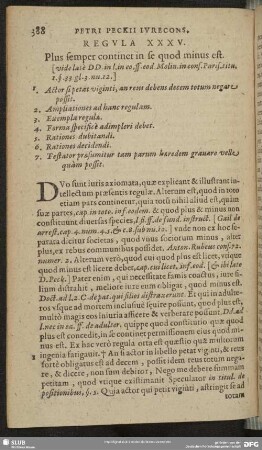 388 PETRI PECKII IVRECONS.
REGVLA XXXV.
Plus semper continet in se quod minus est.
[vide latè DD. in l. in eo, ff. eod. Molin. in cons. Paris. titu.
1. §. 33. gl. 3. nu. 12.]
1. Actor si petat viginti, an reus debens decem totum negare
possit.
2. Ampliationes ad hanc regulam.
3. Exempla regula.
4. Forma specificè adimpleri debet.
5. Rationes dubitandi.
6. Rationes decidendi.
7. Testator præsumitur tam parum hæredem gravare velle
quàm possit.
DVo sunt iuris axiomata, quæ explicant & illustrant in-
tellectum præsentis regulæ. Alterum est, quod in toto
etiam pars continetur, quia totū nihil aliud est, quàm
suæ partes, cap. in toto. isto eodem. & quod plus & minus non
constituunt diversas species, l. si ff. de fund. instruct. [Gail de
arrest. cap. 4. num. 4. 1. & c. 8. sub nu. 12.] vnde non ex hoc se-
parata dicitur societas, quod vnus sociorum minus, alter
plus, ex rebus communibus possidet. Anton. Rubeus cons. 72.
numer. 2. Alterum verò, quod cui quod plus est licet, vtique
quod minus est licere debet, cap. cui licet, inf. eod. [& ibi late
D. Peck.] Pater enim, qui necessitate famis coactus, iure fi-
lium distrahit, meliore iure eum obligat, quod minus est.
Doct. ad l. 2. C. de pat. qui filios distraxerunt. Et qui in adulte-
ros vsque ad mortem inclusiuè sæuire possunt, quod plus est,
multò magis eos iniuria afficere & verberare possunt. Dd. ad
l. nec in ea. ff. de adulter. quippe quod constitutio quæ quod
plus est concedit, in se continet permissionem eius quod mi-
nus est. Ex hac verò regula orta est quæstio quæ multorum
1 ingenia fatigauit. † An si actor in libello petat viginti, & reus
fortè obligatus est ad decem, possit idem reus totum nega-
re, & dicere, non sum debitor, Nego me debere summam
petitam, quod vtique existimant Speculator in titul. de
positionibus, §. 2. Quia actor qui petit viginti, astringit se ad
totum